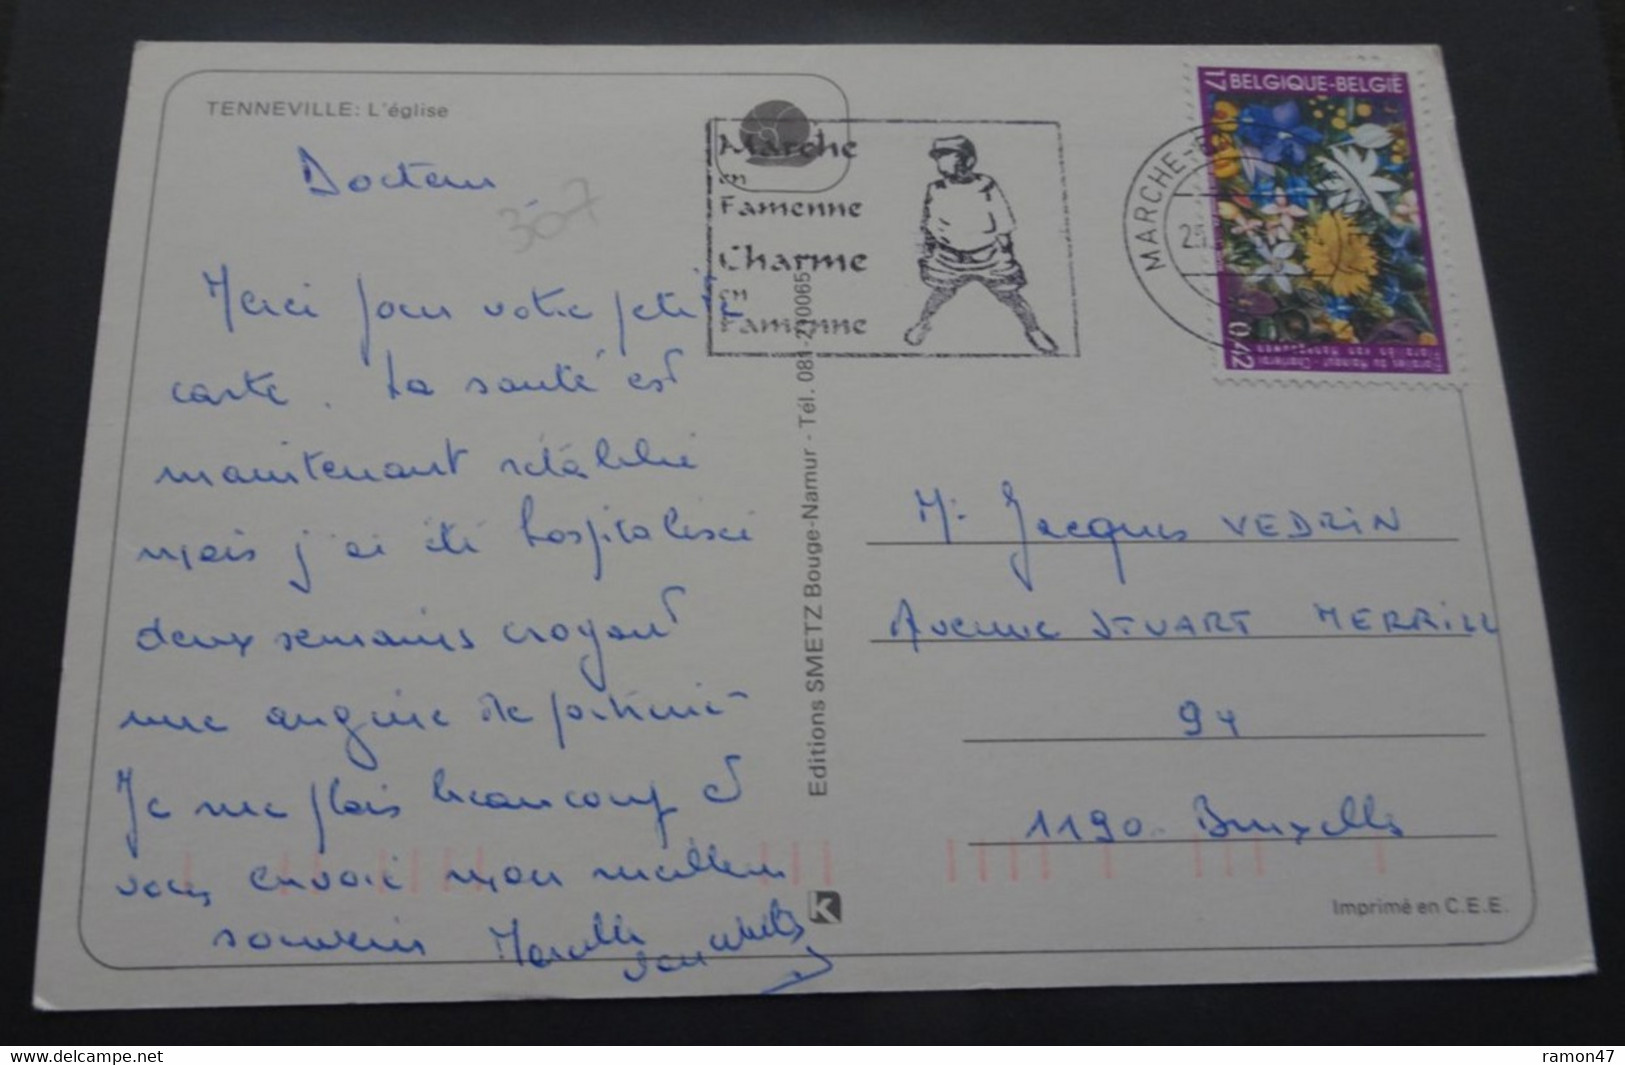 TENNEVILLE: L'église
Docteur
307
Merci pour votre petite
carte. La santé est
maintenant rétablie
mais j'ai été hospitalisée
deux semaines croyant
une angine de poitrine
Je me plais beaucoup et
vous envoie mon meilleur
souvenir Marcelle
Marche
en
Famenne
Charme
en
Famenne
Editions SMETZ Bouge-Namur - Tél. 081-210065
MARCHE-E
17 BELGIQUE-BELGIË
0,42
Mr Jacques VEDRIN
Avenue STUART MERRILL
94
1190 Bruxelles
K
Imprimé en C.E.E.
http://www.delcampe.net
ramon47